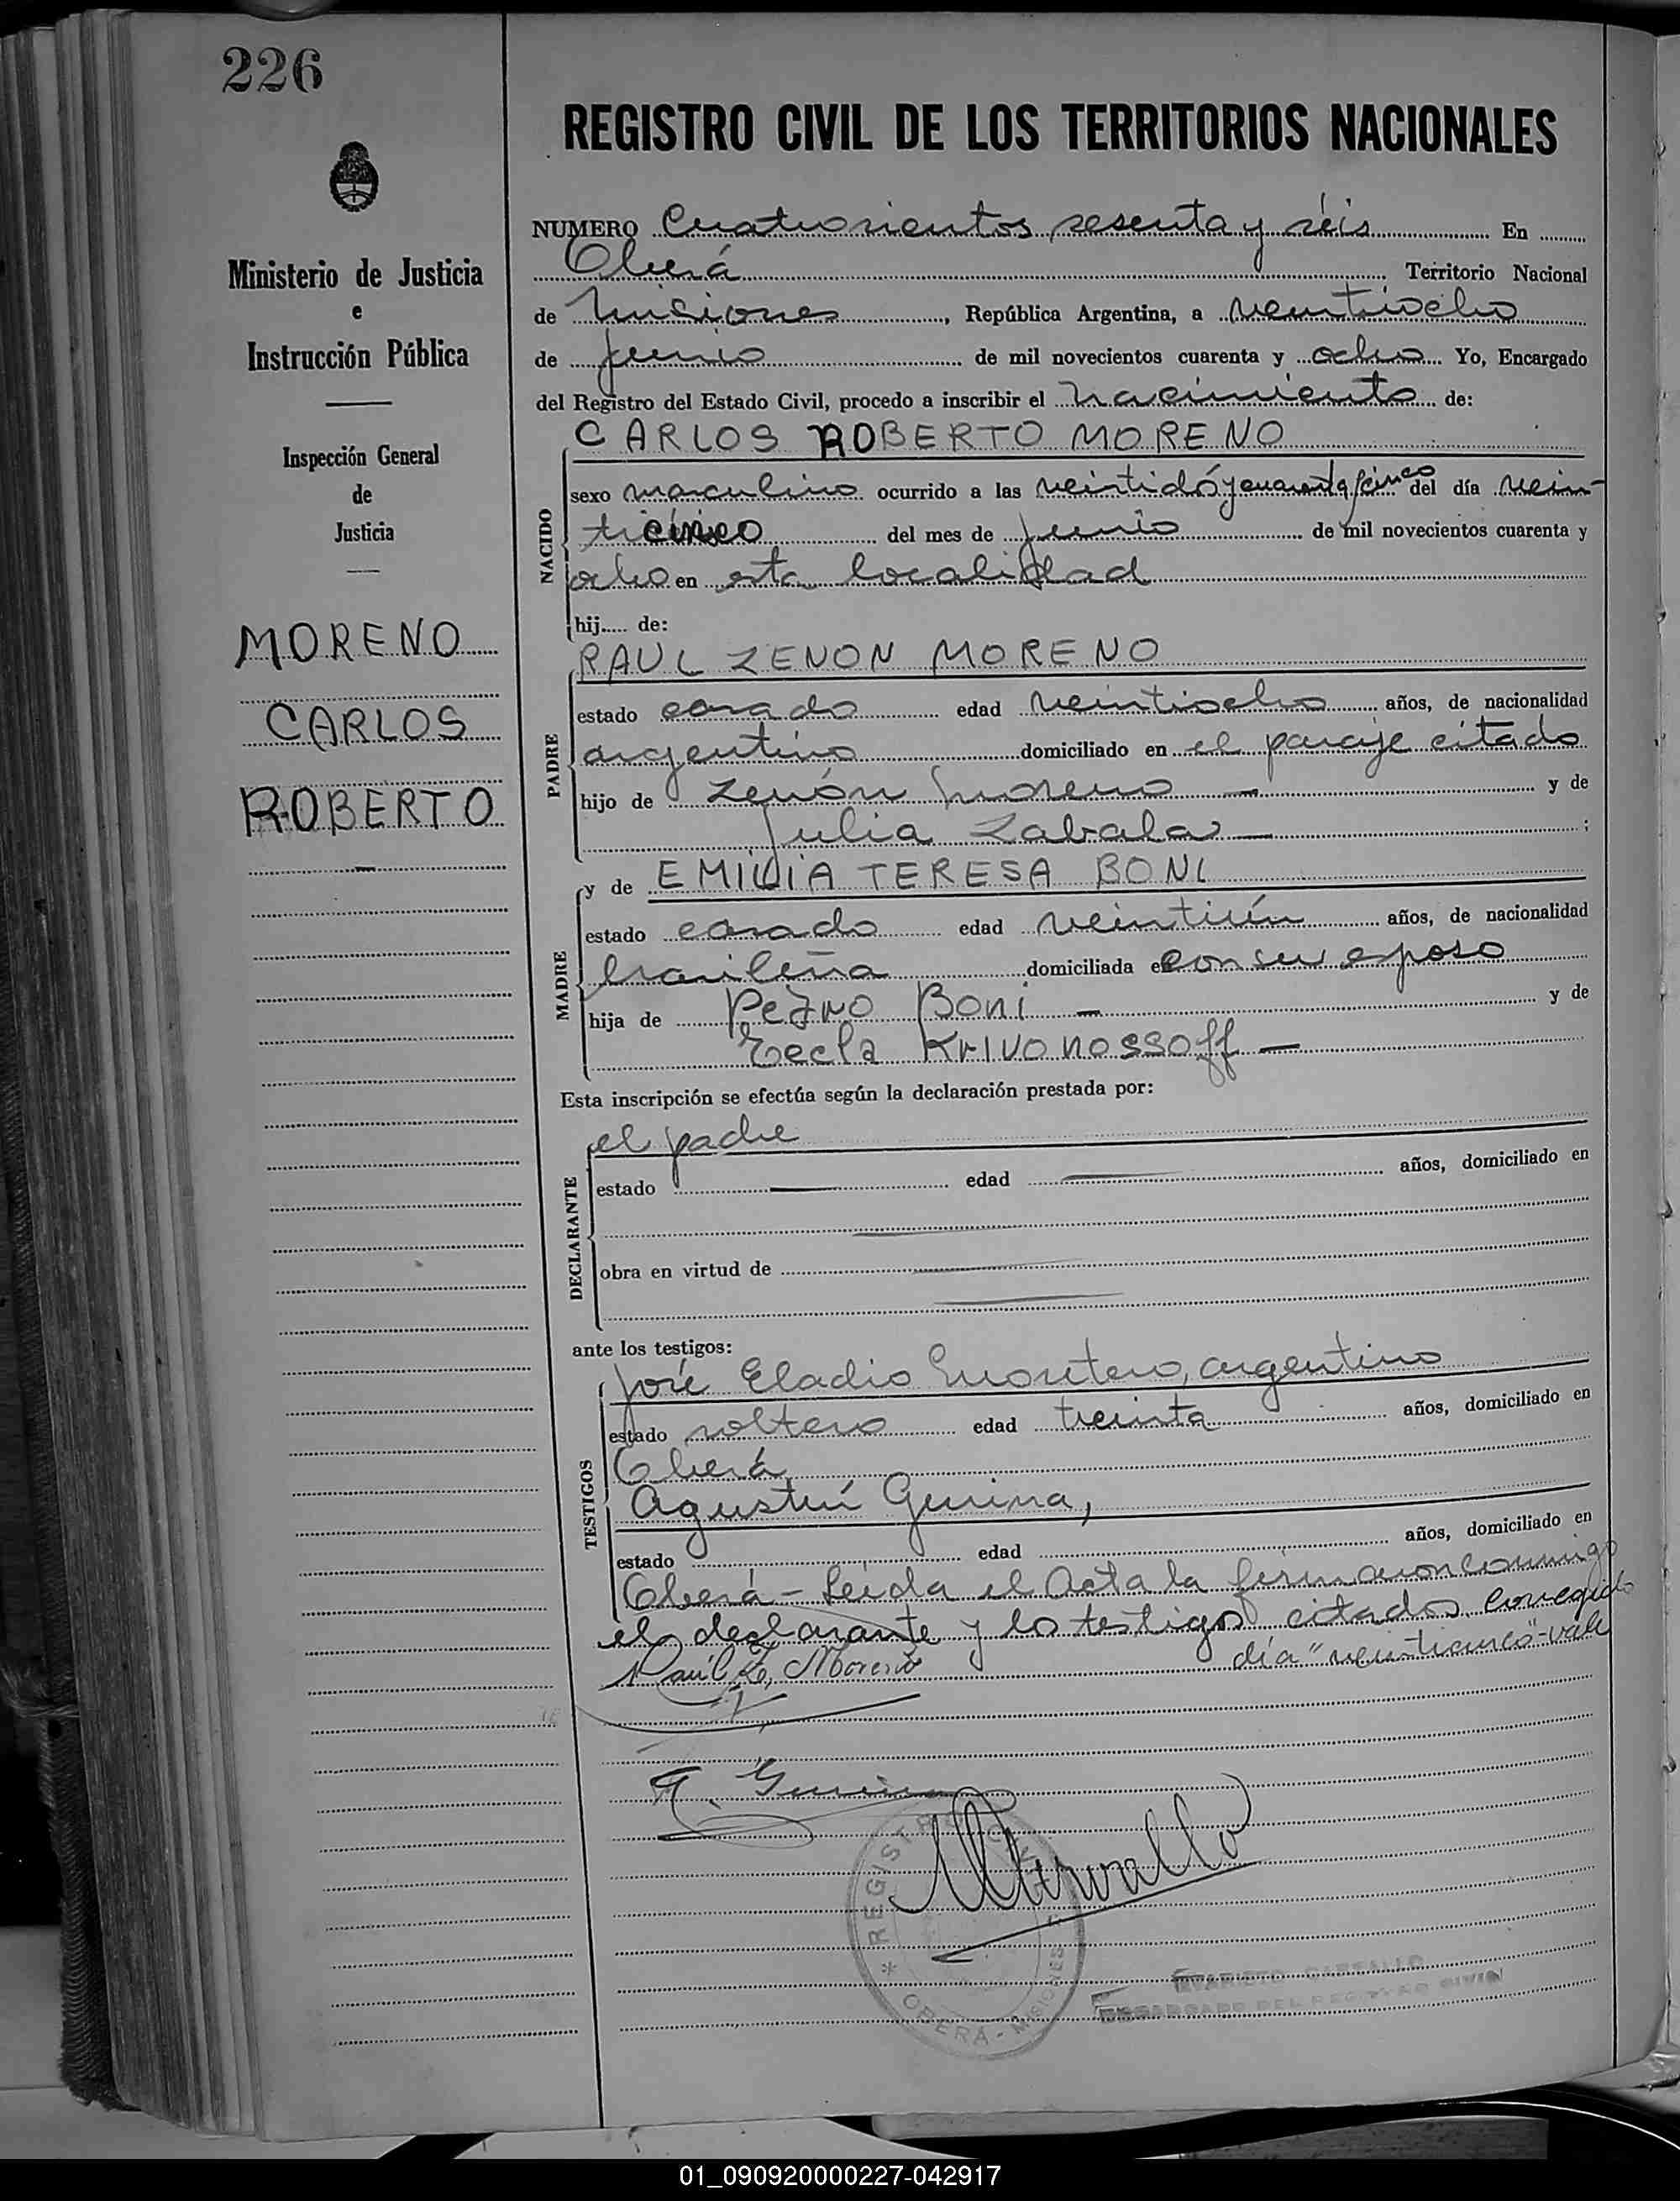 226
REGISTRO CIVIL DE LOS TERRITORIOS NACIONALES
Ministerio de Justicia
e
Instrucción Pública
Inspección General
de
Justicia
MORENO
CARLOS
ROBERTO
NUMERO Cuatrocientos sesenta y séis En
Oberá Territorio Nacional
de Misiones, República Argentina, a veintiocho
de junio de mil novecientos cuarenta y ocho Yo, Encargado
del Registro del Estado Civil, procedo a inscribir el nacimiento de:
CARLOS ROBERTO MORENO
NACIDO
sexo masculino ocurrido a las veintidós y cuarenta y cinco del día vein-
ticinco del mes de junio de mil novecientos cuarenta y
ocho en esta localidad
hij..... de:
RAUL ZENON MORENO
PADRE
estado casado edad veintiocho años, de nacionalidad
argentino domiciliado en el paraje citado
hijo de Zenón Moreno — y de
Julia Zabala — ;
MADRE
y de EMILIA TERESA BONI
estado casado edad veintiún años, de nacionalidad
brasileña domiciliada en con su esposo
hija de Pedro Boni — y de
Tecla Krivonossoff —
Esta inscripción se efectúa según la declaración prestada por:
DECLARANTE
el padre
estado — edad — años, domiciliado en
obra en virtud de
ante los testigos:
TESTIGOS
José Eladio Montero, argentino
estado soltero edad treinta años, domiciliado en
Oberá
Agustín Gunina,
estado edad años, domiciliado en
Oberá - Leída el Acta la firmaron conmigo
el declarante y los testigos citados Corregido
día "veinticinco" - vale
Raúl Z. Moreno
A. Gunina
REGISTRO CIVIL
* OBERA - MISIONES
EVARISTO CARVALLO
ENCARGADO DEL REGISTRO CIVIL
01_090920000227-042917